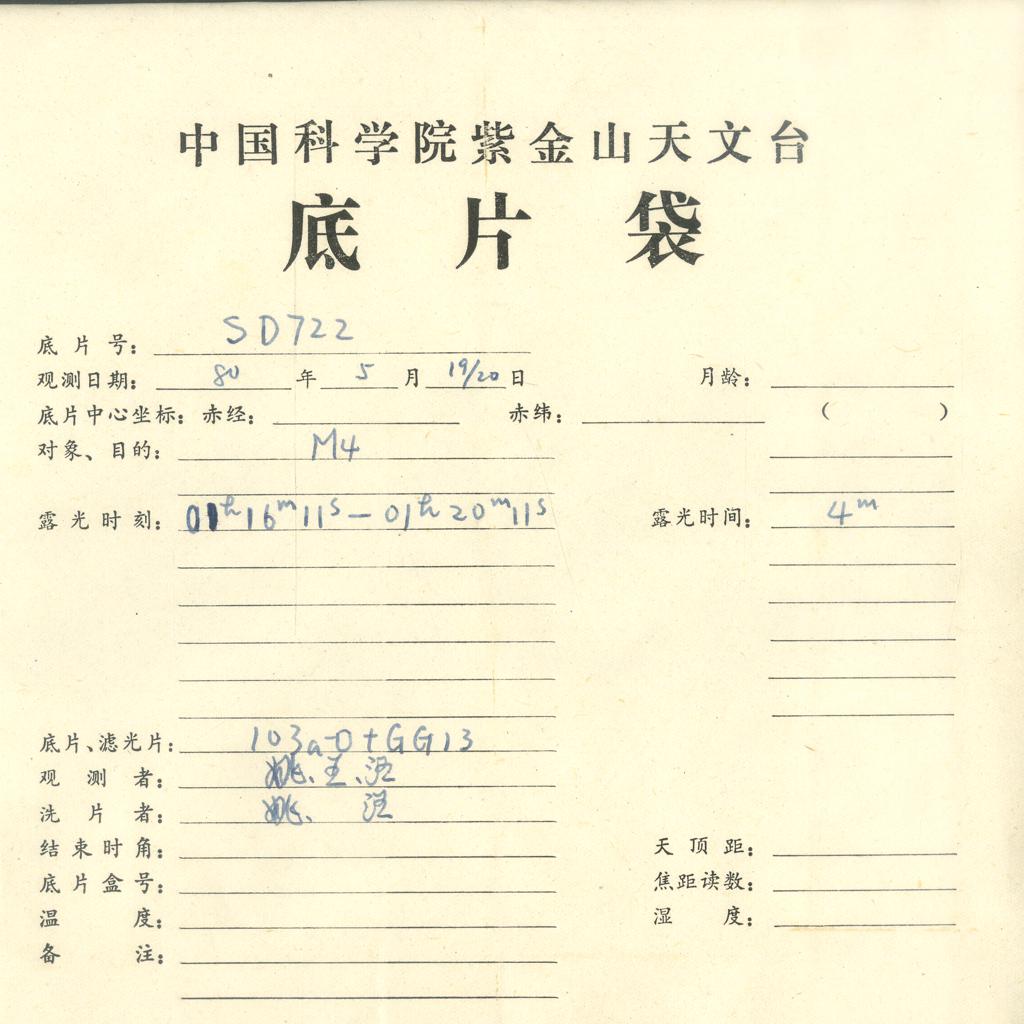 中国科学院紫金山天文台
底片袋
底片号： SD722
观测日期： 80 年 5 月 19/20 日 月龄：
底片中心坐标：赤经： 赤纬： （ ）
对象、目的： M4
露光时刻： 01h16m11s－01h20m11s 露光时间： 4m
底片、滤光片： 103a-O+GG13
观测者： 姚、王、汪
洗片者： 姚、 汪
结束时角： 天顶距：
底片盒号： 焦距读数：
温度： 湿度：
备注：